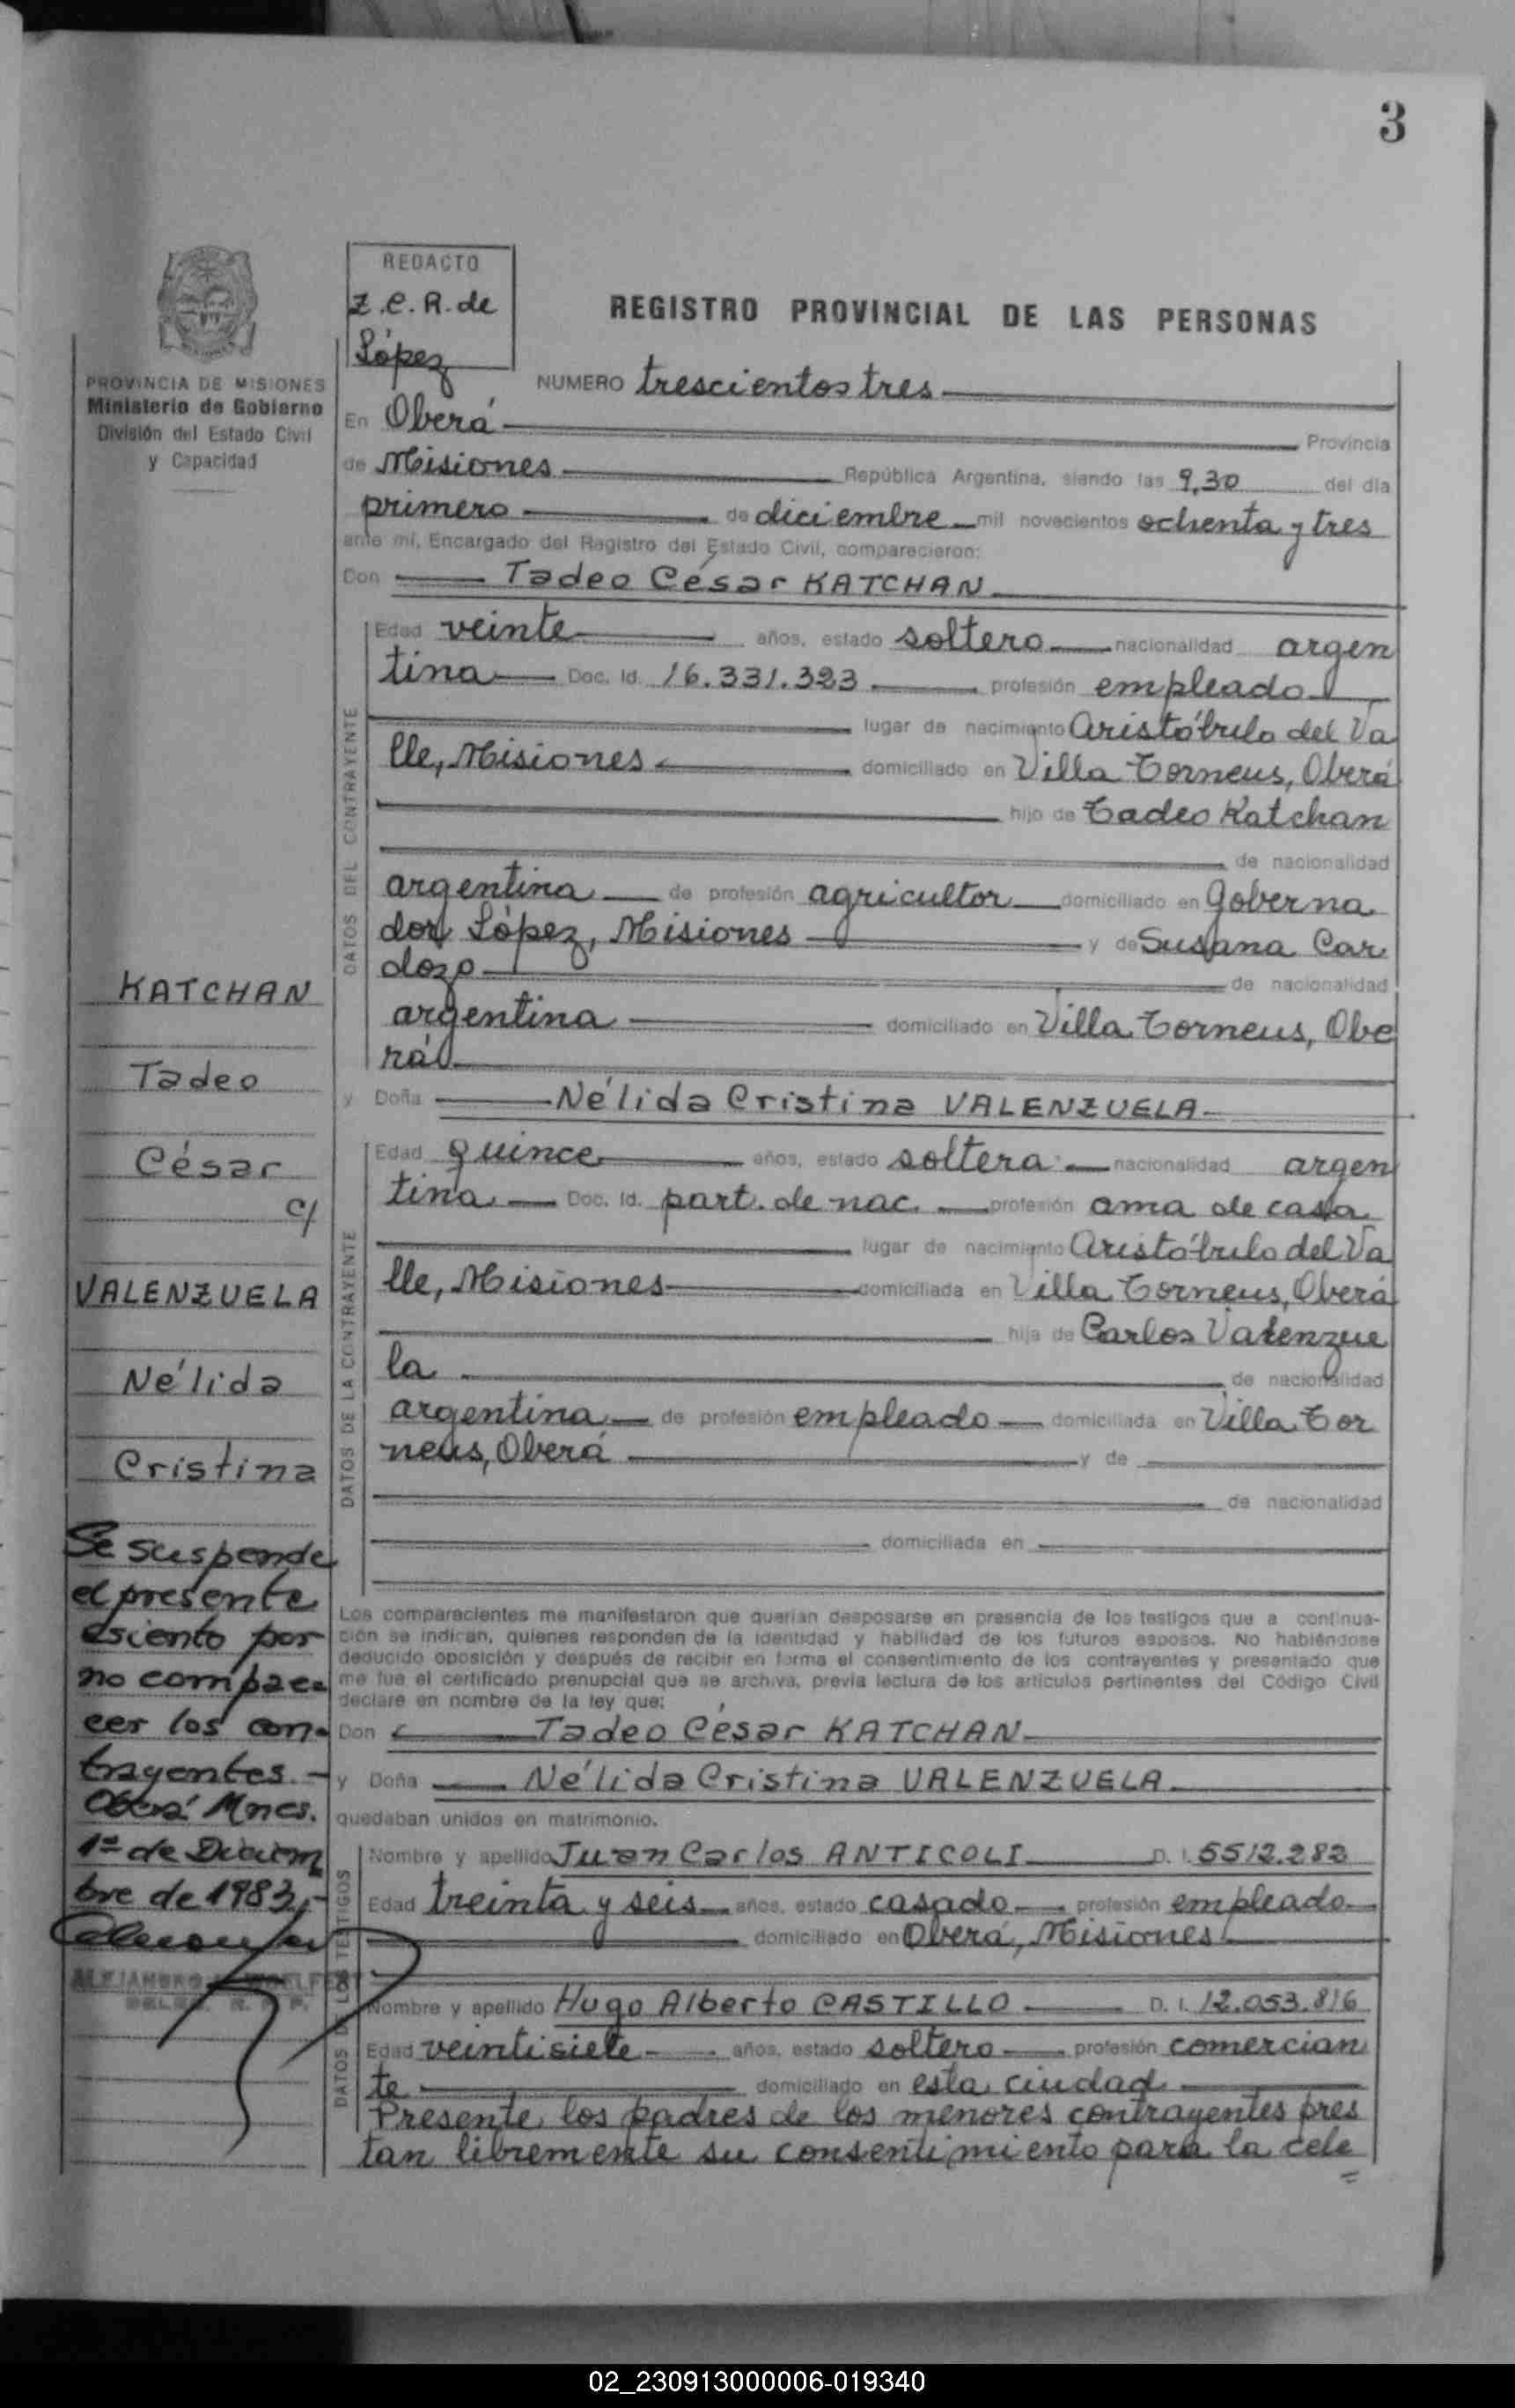 3
REDACTO
Z.C.R. de
López
REGISTRO PROVINCIAL DE LAS PERSONAS
PROVINCIA DE MISIONES
Ministerio de Gobierno
División del Estado Civil
y Capacidad
NUMERO trescientos tres
En Oberá Provincia
de Misiones República Argentina, siendo las 9,30 del día
primero de diciembre mil novecientos ochenta y tres
ante mí, Encargado del Registro del Estado Civil, comparecieron:
Don Tadeo César KATCHAN
DATOS DEL CONTRAYENTE
Edad veinte años, estado soltero nacionalidad argen
tina Doc. Id. 16.331.323 profesión empleado
lugar de nacimiento Aristóbulo del Va
lle, Misiones domiciliado en Villa Torneus, Oberá
hijo de Tadeo Katchan
de nacionalidad
argentina de profesión agricultor domiciliado en Goberna
dor López, Misiones y de Susana Car
dozo de nacionalidad
argentina domiciliado en Villa Torneus, Obe
rá
y Doña Nélida Cristina VALENZUELA
DATOS DE LA CONTRAYENTE
Edad quince años, estado soltera nacionalidad argen
tina Doc. Id. part. de nac. profesión ama de casa
lugar de nacimiento Aristóbulo del Va
lle, Misiones domiciliada en Villa Torneus, Oberá
hija de Carlos Valenzue
la de nacionalidad
argentina de profesión empleado domiciliada en Villa Tor
neus, Oberá y de
de nacionalidad
domiciliada en
Los comparecientes me manifestaron que querían desposarse en presencia de los testigos que a continua-
ción se indican, quienes responden de la identidad y habilidad de los futuros esposos. No habiéndose
deducido oposición y después de recibir en forma el consentimiento de los contrayentes y presentado que
me fue el certificado prenupcial que se archiva, previa lectura de los artículos pertinentes del Código Civil
declaré en nombre de la ley que:
Don Tadeo César KATCHAN
y Doña Nélida Cristina VALENZUELA
quedaban unidos en matrimonio.
DATOS DE LOS TESTIGOS
Nombre y apellido Juan Carlos ANTICOLI D. I. 5512.282
Edad treinta y seis años, estado casado profesión empleado
domiciliado en Oberá, Misiones
Nombre y apellido Hugo Alberto CASTILLO D. I. 12.053.816
Edad veintisiete años, estado soltero profesión comercian
te domiciliado en esta ciudad
Presente los padres de los menores contrayentes pres
tan libremente su consentimiento para la cele
=
KATCHAN
Tadeo
César
c/
VALENZUELA
Nélida
Cristina
Se suspende
el presente
asiento por
no compare
cer los con-
trayentes.-
Oberá Mnes.
1º de Diciem
bre de 1983.-
02_230913000006-019340